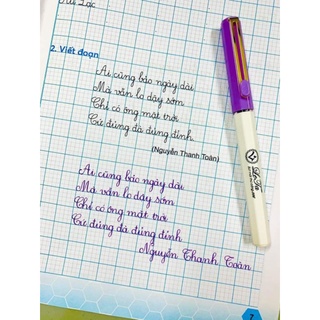 Ai Lạc
2. Viết đoạn
Ai cũng bảo ngày dài
Mà vẫn lo dậy sớm
Chỉ có ông mặt trời
Cứ đủng đà đủng đỉnh.
(Nguyễn Thanh Toàn)
Ai cũng bảo ngày dài
Mà vẫn lo dậy sớm
Chỉ có ông mặt trời
Cứ đủng đà đủng đỉnh
Nguyễn Thanh Toàn
7